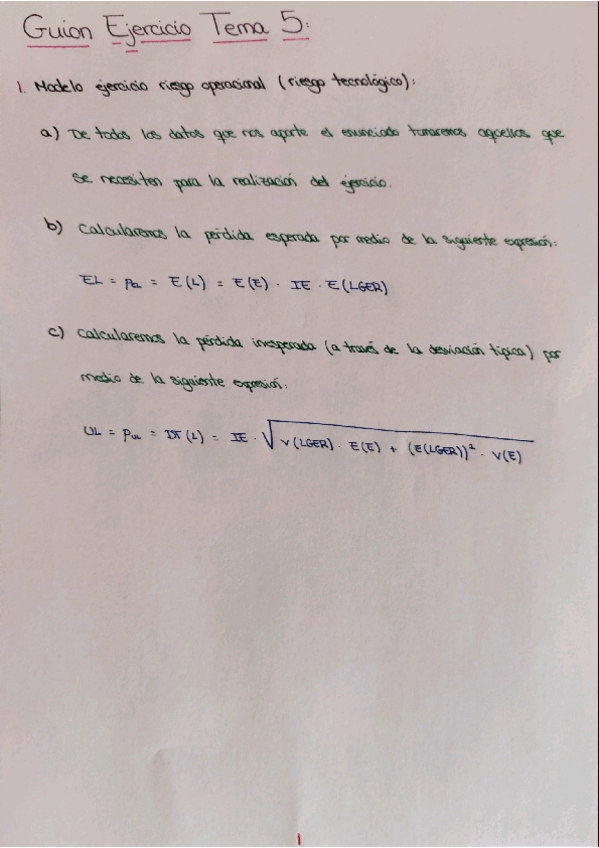 Guion Ejercicio Tema 5:
1. Modelo ejercicio riesgo operacional (riesgo tecnológico):
a) De todos los datos que nos aporte el enunciado tomaremos aquellos que
se necesiten para la realización del ejercicio.
b) Calcularemos la pérdida esperada por medio de la siguiente expresión:
EL = P_EL = E(L) = E(E) · IE · E(LGER)
c) Calcularemos la pérdida inesperada (a través de la desviación típica) por
medio de la siguiente expresión:
UL = P_UL = DT(L) = IE · √(V(LGER) · E(E) + (E(LGER))² · V(E))
1